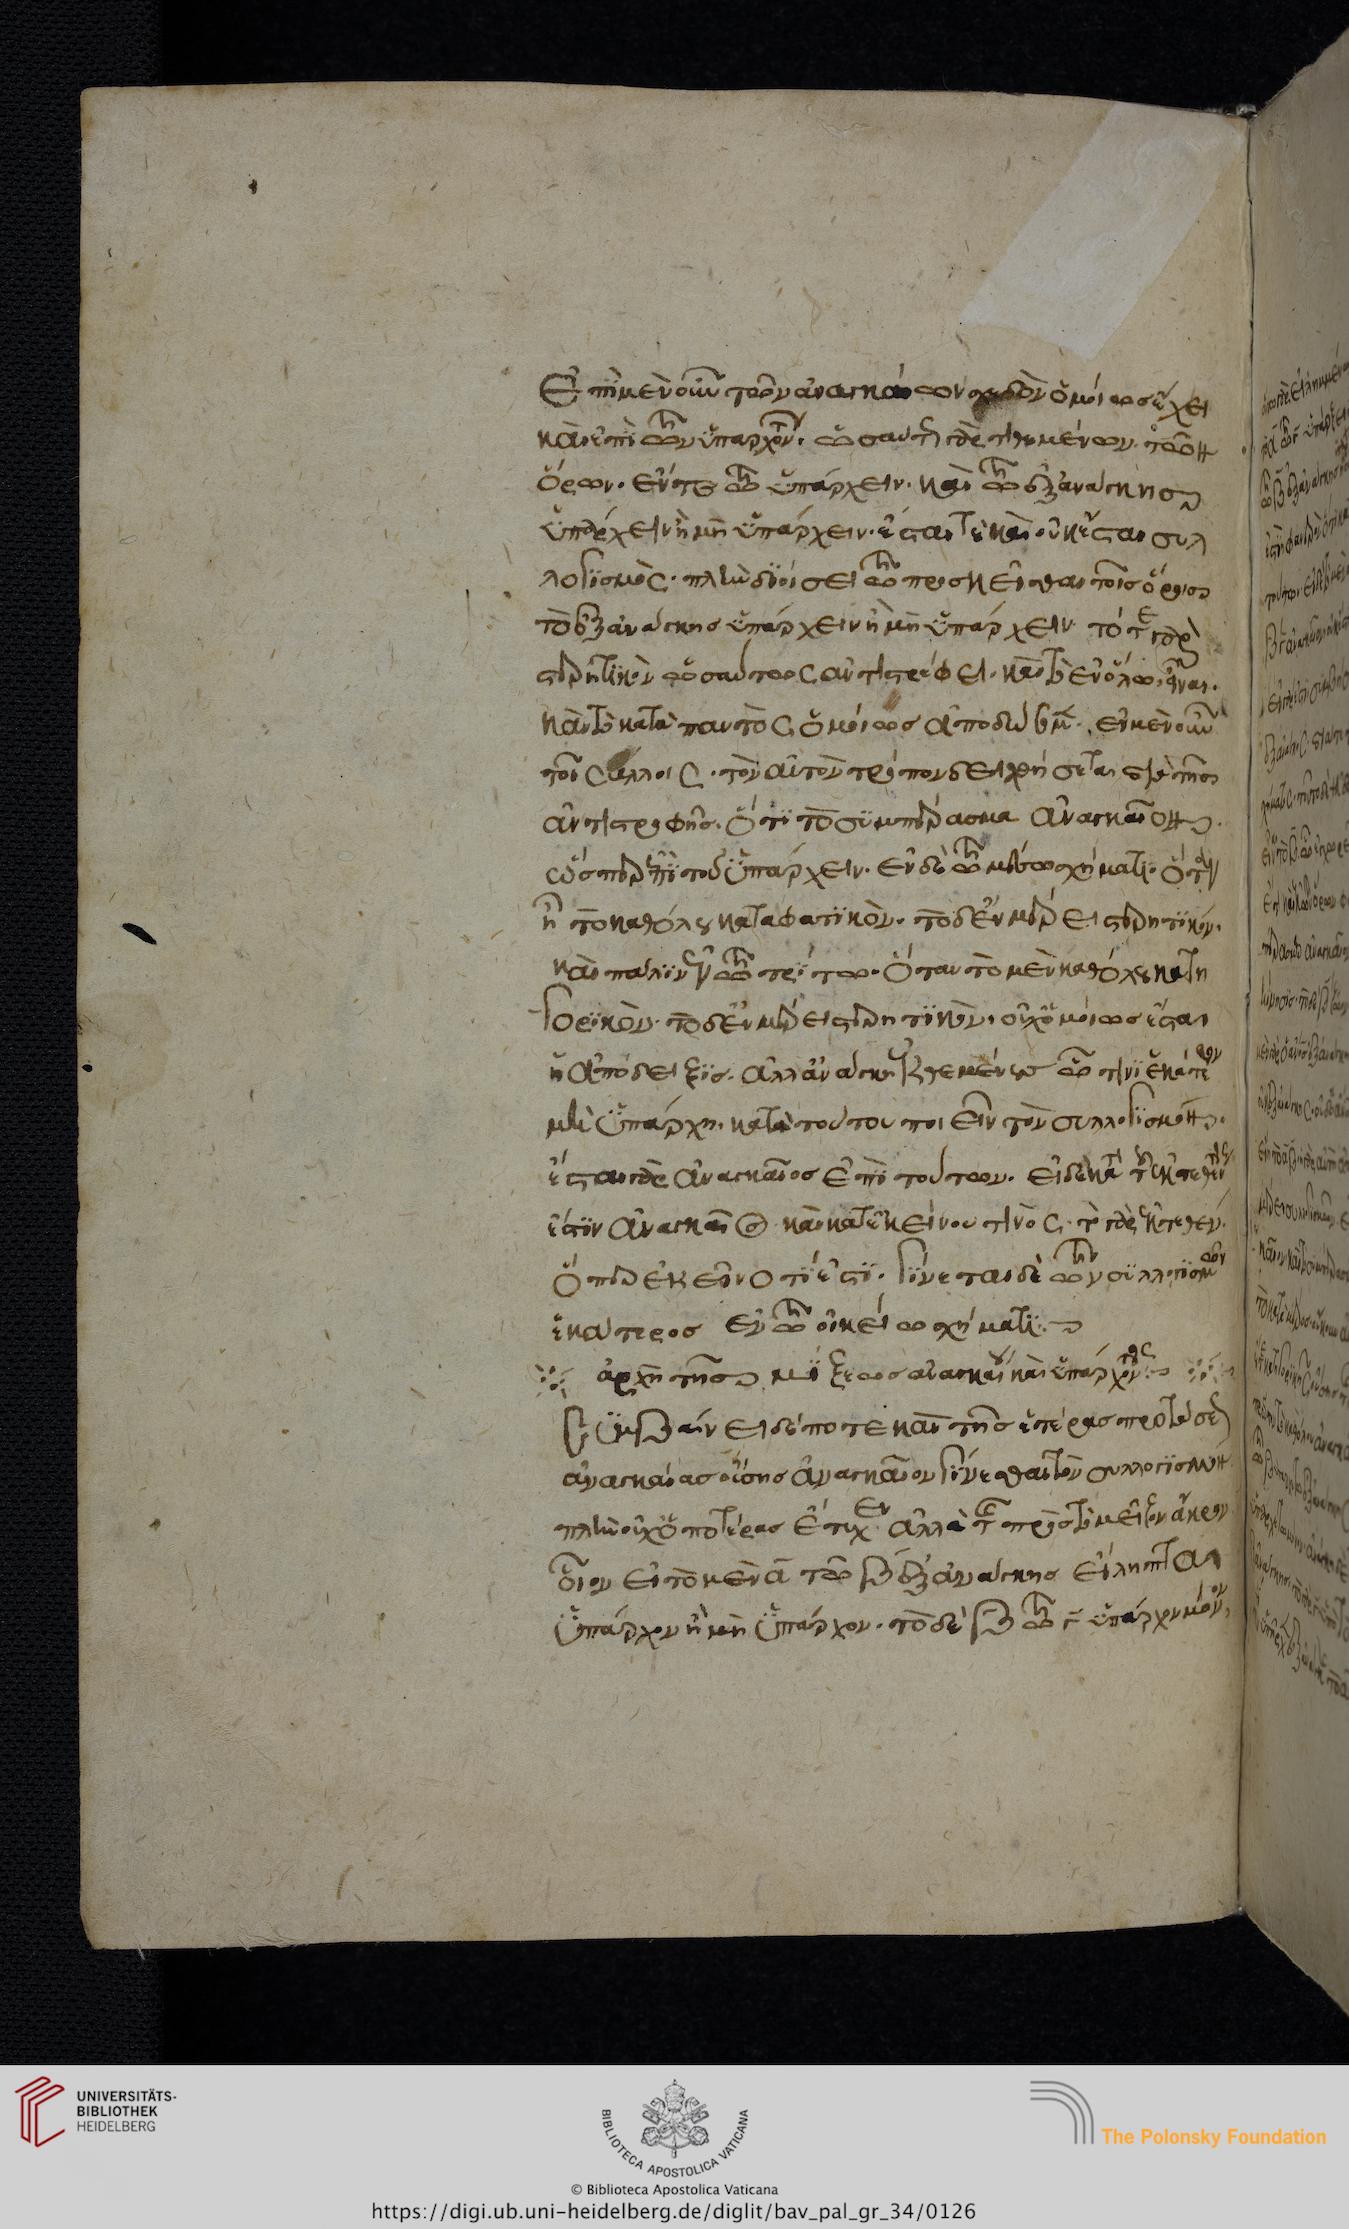 Ἐπὶ μὲν οὖν τῶν ἀναγκαίων σχεδὸν ὁμοίως ἔχει
καὶ ἐπὶ τῶν ὑπαρχόντων· ὡσαύτως γὰρ τιθεμένων τῶν
ὅρων· ἔν τε τῶ ὑπάρχειν· καὶ τῶ ἐξ ἀνάγκης
ὑπάρχειν ἢ μὴ ὑπάρχειν· ἔσται τὲ καὶ οὐκ ἔσται συλ
λογισμός· πλὴν διοίσει τῶ προσκεῖσθαι τοῖς ὅροις
τὸ ἐξ ἀνάγκης ὑπάρχειν ἢ μὴ ὑπάρχειν· τό τε γὰρ
στερητικὸν ὡσαύτως ἀντιστρέφει· καὶ τὸ ἐν ὅλω εἶναι·
καὶ τὸ κατὰ παντὸς ὁμοίως ἀποδώσομεν· ἐν μὲν οὖν
τοῖς ἄλλοις· τὸν αὐτὸν τρόπον δειχθήσεται διὰ τῆς
ἀντιστροφῆς· ὅτι τὸ συμπέρασμα ἀναγκαῖον
ὥσπερ ἐπὶ τοῦ ὑπάρχειν· ἐν δὲ τῶ μέσω σχήματι· ὅταν
ἦ τὸ καθόλου καταφατικόν· τὸ δ' ἐν μέρει στερητικόν·
καὶ πάλιν ἐν τῶ τρίτω· ὅταν τὸ μὲν καθόλου κατη
γορικὸν· τὸ δ' ἐν μέρει στερητικὸν· οὐχ ὁμοίως ἔσται
ἡ ἀπόδειξις· ἀλλ' ἀνάγκη ἐκθεμένους ὧ τινὶ ἑκάτερον
μὴ ὑπάρχη· κατὰ τούτου ποιεῖν τὸν συλλογισμόν·
ἔσται γὰρ ἀναγκαῖος ἐπὶ τούτων· εἰ δὲ κατὰ τοῦ ἐκτεθέντος
ἐστὶν ἀναγκαῖος καὶ κατ' ἐκείνου τινός· τὸ γὰρ ἐκτεθὲν·
ὅπερ ἐκεῖνό τι ἐστί· γίνεται δὲ τῶν συλλογισμῶν
ἑκάτερος ἐν τῶ οἰκείω σχήματι
ἀρχὴ τῆς μίξεως ἀναγκαίου καὶ ὑπάρχοντος
Συμβαίνει δέ ποτε καὶ τῆς ἑτέρας προτάσεως
ἀναγκαίας οὔσης ἀναγκαῖον γίνεσθαι τὸν συλλογισμόν
πλὴν οὐχ ὁποτέρας ἔτυχεν ἀλλὰ τῆς πρὸς τὸ μεῖζον ἄκρον
οἷον εἰ τὸ μὲν α τῶ β ἐξ ἀνάγκης εἴληπται
ὑπάρχον ἢ μὴ ὑπάρχον· τὸ δὲ β τῶ γ ὑπάρχον μόνον
UNIVERSITÄTS-
BIBLIOTHEK
HEIDELBERG
BIBLIOTECA APOSTOLICA VATICANA
The Polonsky Foundation
© Biblioteca Apostolica Vaticana
https://digi.ub.uni-heidelberg.de/diglit/bav_pal_gr_34/0126